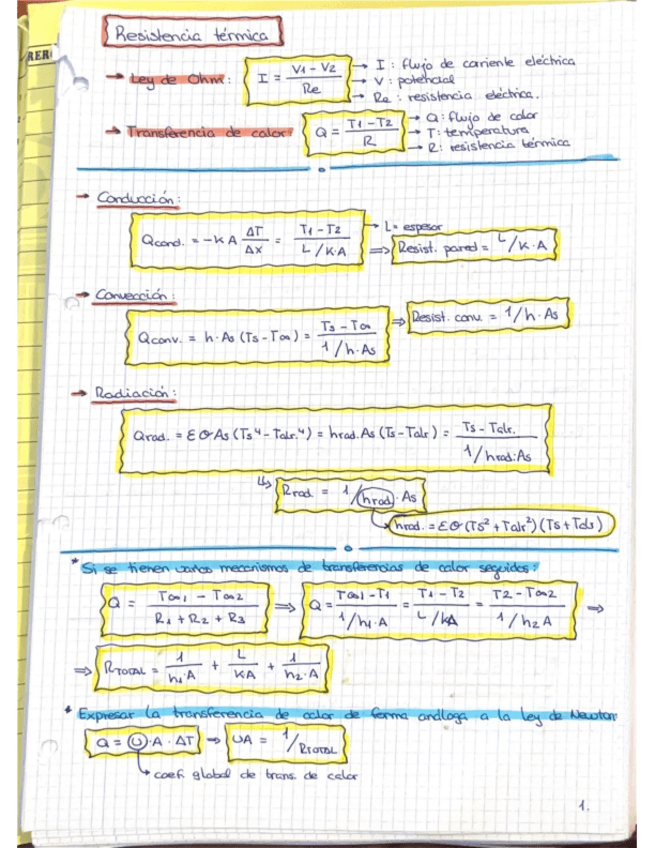 Resistencia térmica
RER
→ Ley de Ohm: I = (V1 - V2) / Re → I: flujo de corriente eléctrica
→ V: potencial
→ Re: resistencia eléctrica.
→ Transferencia de calor: Q = (T1 - T2) / R → Q: flujo de calor
→ T: temperatura
→ R: resistencia térmica
→ Conducción:
Qcond. = -KA ΔT/Δx = (T1 - T2) / (L/K·A) → L= espesor
⇒ Resist. pared = L/K·A
→ Convección:
Qconv. = h·As (Ts - T∞) = (Ts - T∞) / (1/h·As) ⇒ Resist. conv. = 1/h·As
→ Radiación:
Qrad. = εσAs (Ts⁴ - Talr.⁴) = hrad.As (Ts - Talr) = (Ts - Talr.) / (1/hrad.As)
↳ Rrad = 1/hrad·As
hrad. = εσ (Ts² + Talr²)(Ts + Talr)
* Si se tienen varios mecanismos de transferencias de calor seguidos:
Q = (T∞1 - T∞2) / (R1 + R2 + R3) ⇒ Q = (T∞1 - T1) / (1/h1·A) = (T1 - T2) / (L/KA) = (T2 - T∞2) / (1/h2A) ⇒
⇒ RTOTAL = 1/(h1·A) + L/(KA) + 1/(h2·A)
* Expresar la transferencia de calor de forma análoga a la ley de Newton
Q = U·A·ΔT ⇒ UA = 1/RTOTAL
↳ coef. global de trans. de calor
1.